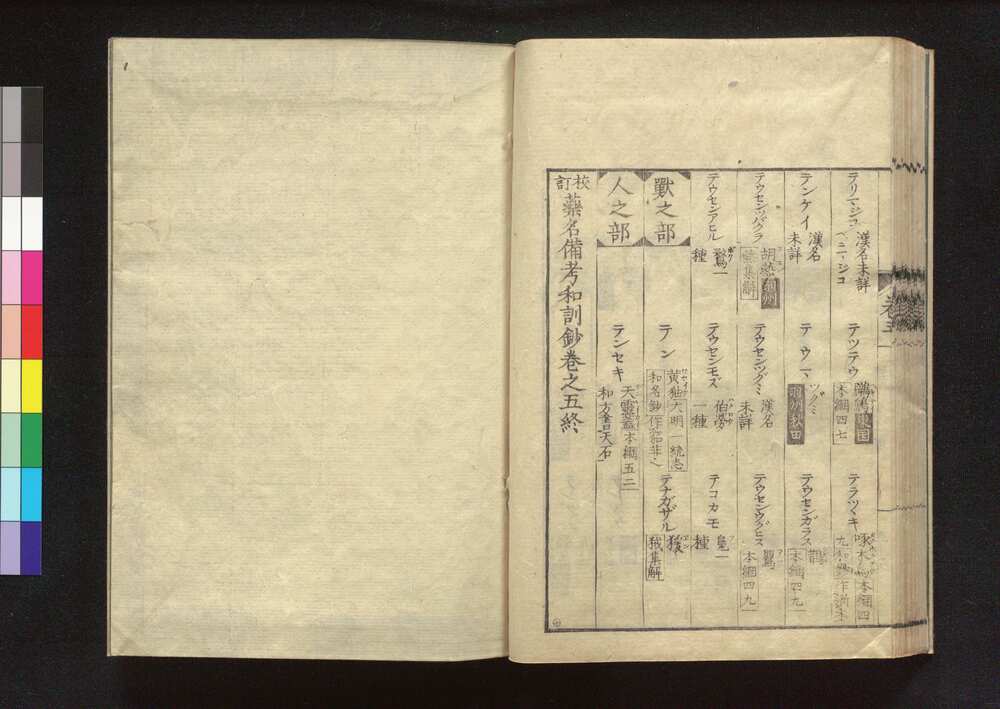 テリマシコ 漢名未詳 ベニマシコ
テツテウ 本綱四七
テラツヽキ 啄木鳥 本綱四九
テンケイ 漢名未詳
テウマ ツグミ 羽州秋田
テウセンガラス 鵲 本綱四九
テウセンツバクラ 胡燕 集解
テウセンツグミ 漢名未詳
テウセンウグヒス 鸎 本綱四九
テウセンアヒル 一種
テウセンモズ 伯勞一種
テコカモ 鳧一種
獸之部
テン 黄鼬 大明一統志 和名鈔作貂非
テナガザル 猿 集解
人之部
テンセキ 天靈蓋 本綱五二 和方書天石
校訂藥名備考和訓鈔卷之五終
卷五